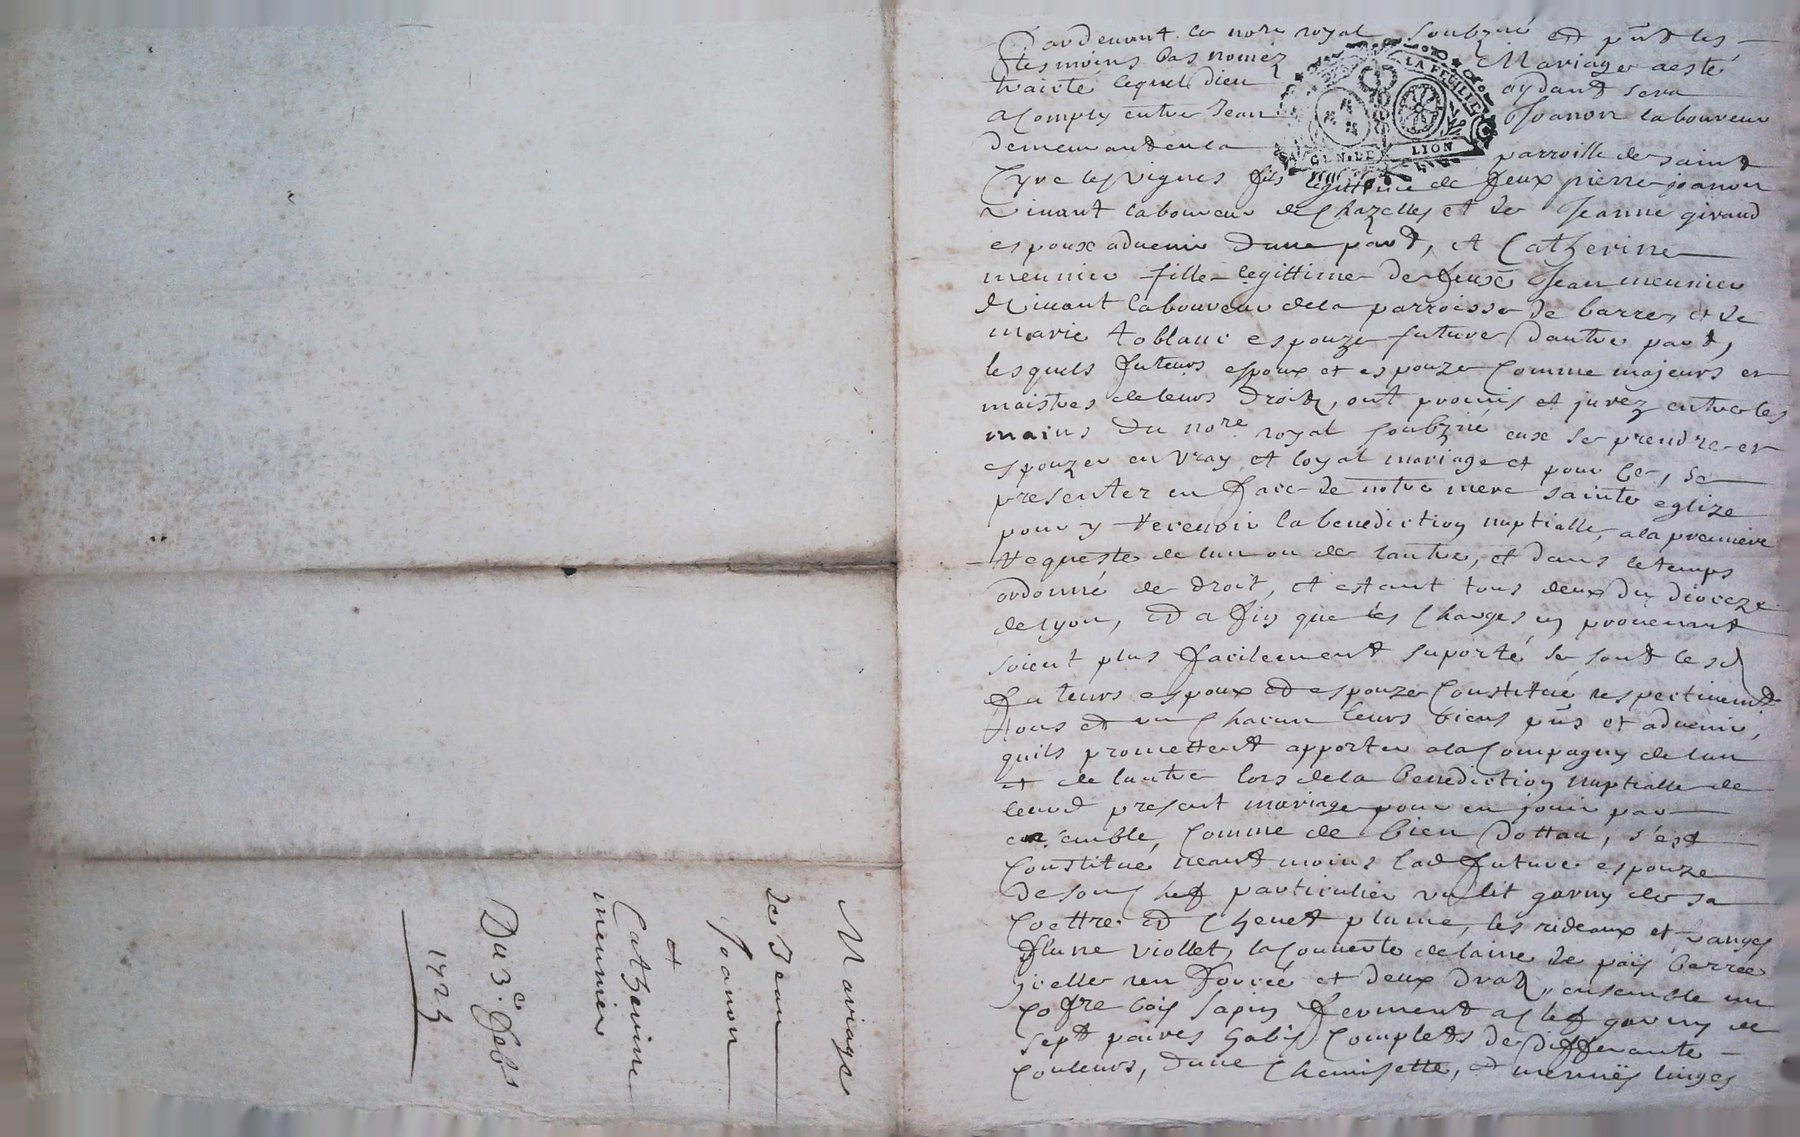 Mariage
de Jean
Joanon
et
Catherine
meunier
Du 3e feb
1723
Pardevant le nore royal soubzné et pnt les
tesmoins bas nomez Mariage a esté
traité lequel Dieu aydant sera
acomply entre Jean Joanon laboureur
LA FEUILLE
GEN. DE LION
demeurant en la parroisse de saint
Cyre les vignes fils legittime de feux pierre joanon
vivant laboureur de Chazelles et de Jeanne giraud
espoux advenir dune part, et Catherine
meunier fille legittime de feux Jean meunier
vivant laboureur de la parroisse de barre, et de
marie espouze future dautre part,
lesquels futeurs espoux et espouze comme majeurs et
maistres de leurs droitz, ont promis et jurez entre les
mains du nore royal soubzné eux se prendre et
espouzer en vray et loyal mariage et pour ce, se
presenter en face de notre mere sainte eglize
pour y recevoir la benediction nuptialle, a la premiere
requeste de lun ou de lautre, et dans le temps
ordonné de droit, et estant tous deux du dioceze
de lyon, et a fin que les charges en provenant
soient plus facilement suporté se sont lesd
futeurs espoux et espouze constitué respectivemt
tous et un chacun leurs biens pns et advenir,
quils promettent apporter a la compagny de lun
et de lautre lors de la benediction nuptialle de
leurd present mariage pour en jouir par
ensemble, comme de bien dottau, s'est
constitué neantmoins lad future espouze
de son chef particulier un lit garny de sa
coettre et chevet plume, les rideaux et franges
filune viollet, la couverte de laine de païs barrée
icelle en et deux draz, ensemble un
coffre bois sapin ferment a clef garny de
sept paires habis complets de differante
couleurs, dune chemisette, et menuës linges